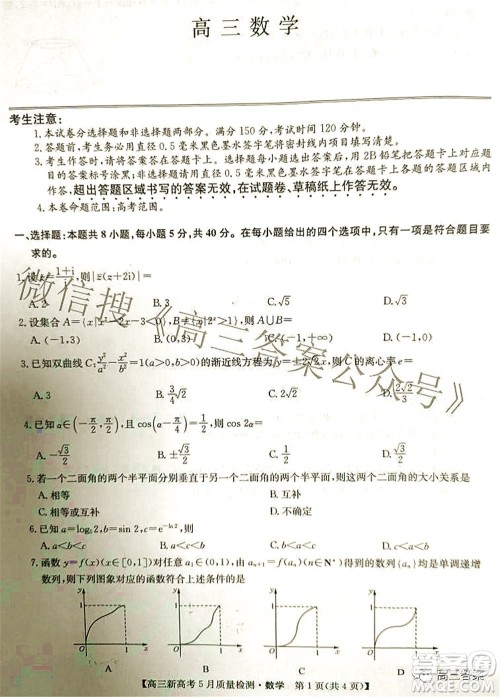 高三数学
考生注意:
1.本试卷分选择题和非选择题两部分。满分150分,考试时间120分钟。
2.答题前,考生务必用直径0.5毫米黑色墨水签字笔将密封线内项目填写清楚。
3.考生作答时,请将答案答在答题卡上。选择题每小题选出答案后,用2B铅笔把答题卡上对应题目的答案标号涂黑;非选择题请用直径0.5毫米黑色墨水签字笔在答题卡上各题的答题区域内作答,超出答题区域书写的答案无效,在试题卷、草稿纸上作答无效。
4.本卷命题范围:高考范围。
一、选择题:本题共8小题,每小题5分,共40分。在每小题给出的四个选项中,只有一项是符合题目要求的。
A.2 C.√5 D.√3
A.(-1,3) C.(0,3) D.(-1,0)
3.已知双曲线C:y²/a²-x²/b²=1的渐近线方程为y=±2√2x,则C的离心率e=
A.3 B.3/4√2 C.√5 D.2√2/3
4.已知α∈(-π/2,π/2),且cos(α-π/6)=1/2,则cos2α=
A.-√3/2 B.-1/2 C.1/2 D.√3/2
5.若一个二面角的两个半平面分别垂直于另一个二面角的两个半平面,则这两个二面角的大小关系是
A.相等 B.互补
C.相等或互补 D.不确定
6.已知a=log₅2,b=sin 2,c=e^(-ln 2),则
A.a<b<c B.b<a<c C.a<c<b D.c<a<b
7.函数y=f(x)(x∈[0,1])对任意a₁∈(0,1),由aₙ₊₁=f(aₙ)(n∈N*)得到的数列{aₙ}均是单调递增数列,则下列图象对应的函数符合上述条件的是
A B C D
【高三新高考5月质量检测·数学 第1页(共4页)】
微信搜《高三答案公众号》
高三答案